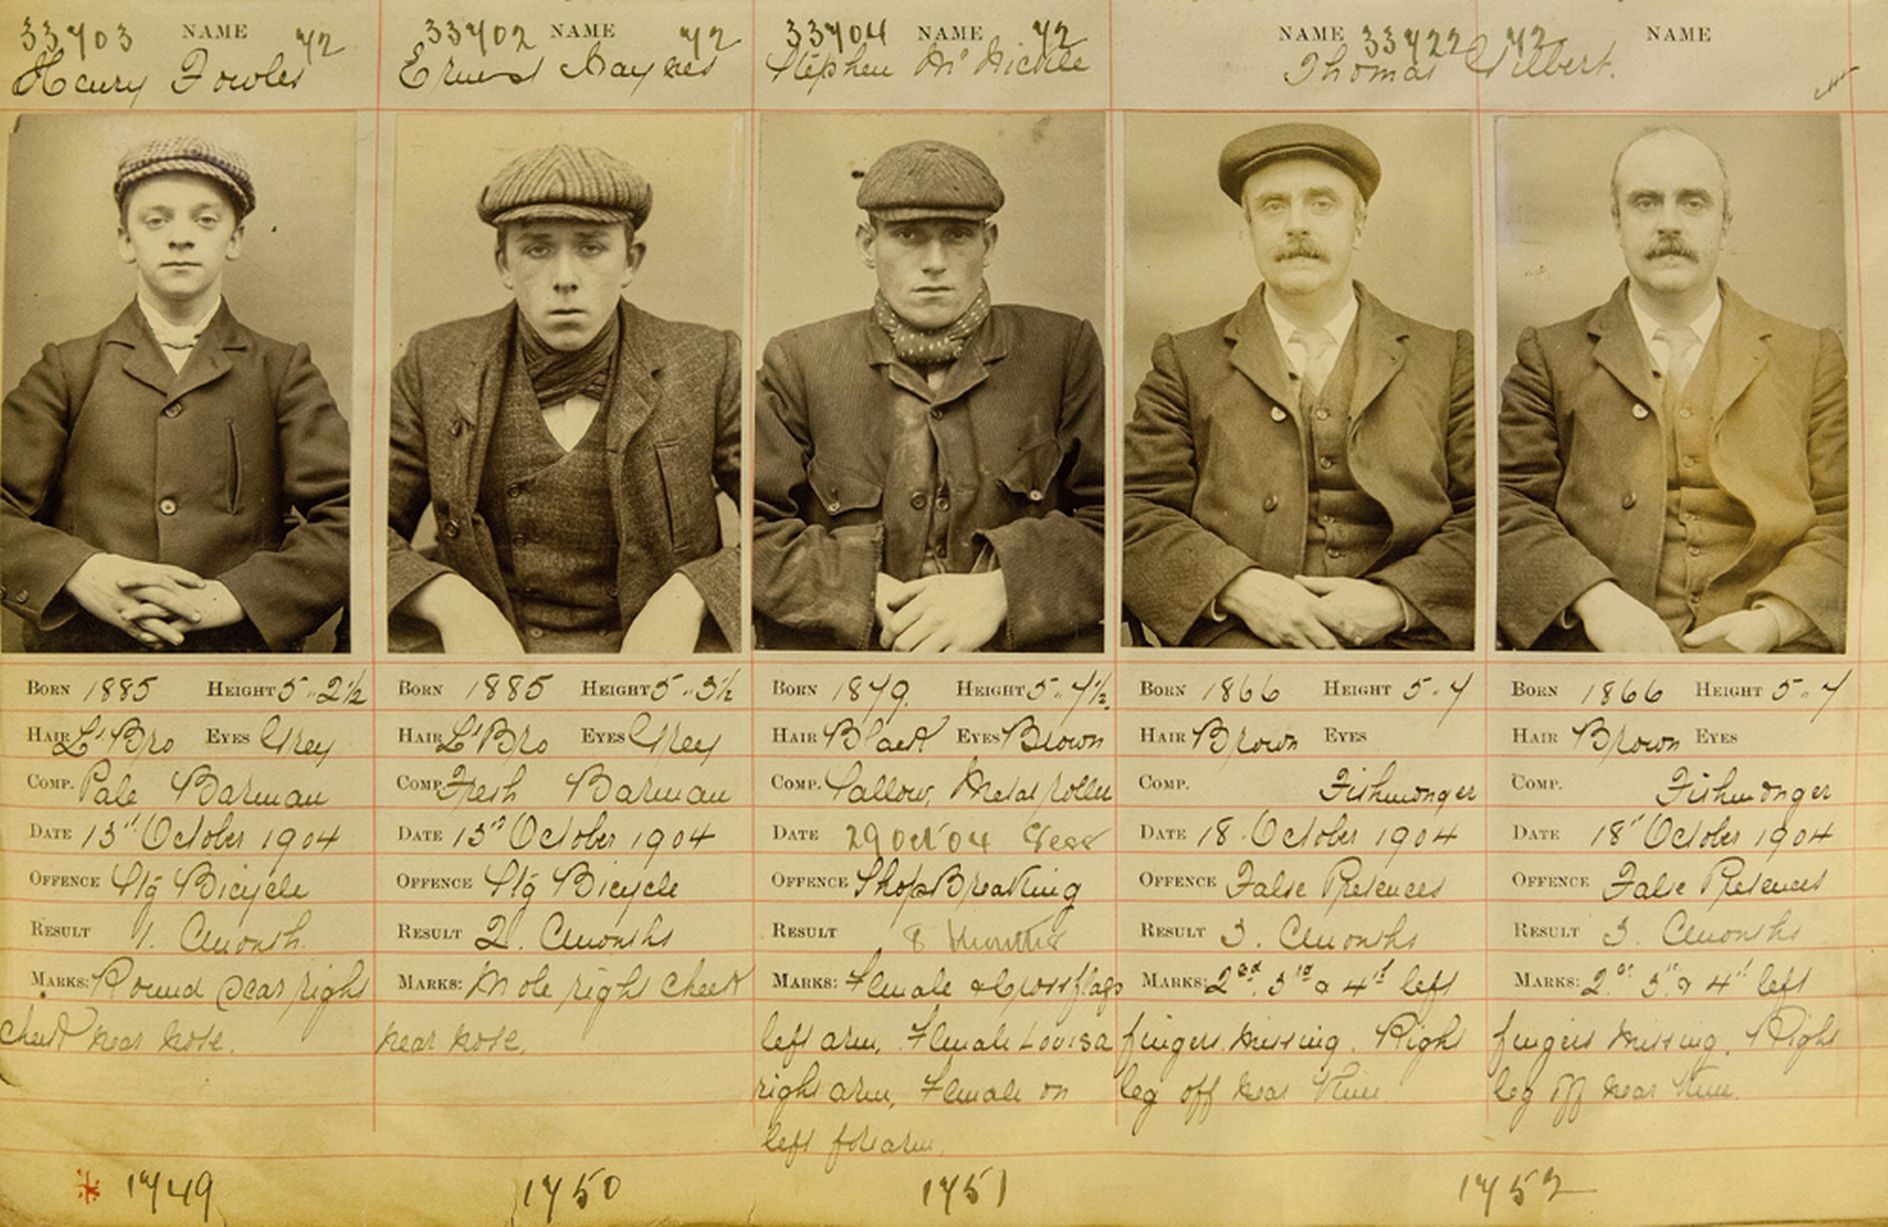 33703 NAME 72
Henry Fowles
33702 NAME 72
Ernest Haynes
33704 NAME 72
Stephen McNickle
NAME 33722 72
Thomas Gilbert.
NAME
BORN 1885 HEIGHT 5"2½
HAIR L'Bro EYES Grey
COMP. Pale Barman
DATE 13th October 1904
OFFENCE Stg Bicycle
RESULT 1. Cmonth.
MARKS: Round Scar right
cheek near nose.
1749
BORN 1885 HEIGHT 5"3½
HAIR L'Bro EYES Grey
COMP. Fresh Barman
DATE 13th October 1904
OFFENCE Stg Bicycle
RESULT 2. Cmonths
MARKS: Mole right cheek
near nose.
1750
BORN 1879. HEIGHT 5"7½.
HAIR Black EYES Brown
COMP. Sallow, Metal roller
DATE 29 Oct 04 Sess
OFFENCE Shop Breaking
RESULT 8 Months
MARKS: Female & Cross flags
left arm, Female Louisa
right arm, Female on
left forearm.
1751
BORN 1866 HEIGHT 5.7
HAIR Brown EYES
COMP. Fishmonger
DATE 18. October 1904
OFFENCE False Pretences
RESULT 3. Cmonths
MARKS: 2nd. 3rd & 4th left
fingers missing. Right
leg off near Knee.
BORN 1866 HEIGHT 5"7
HAIR Brown EYES
COMP. Fishmonger
DATE 18th October 1904
OFFENCE False Pretences
RESULT 3. Cmonths
MARKS: 2nd 3rd & 4th left
fingers missing. Right
leg off near Knee.
1752